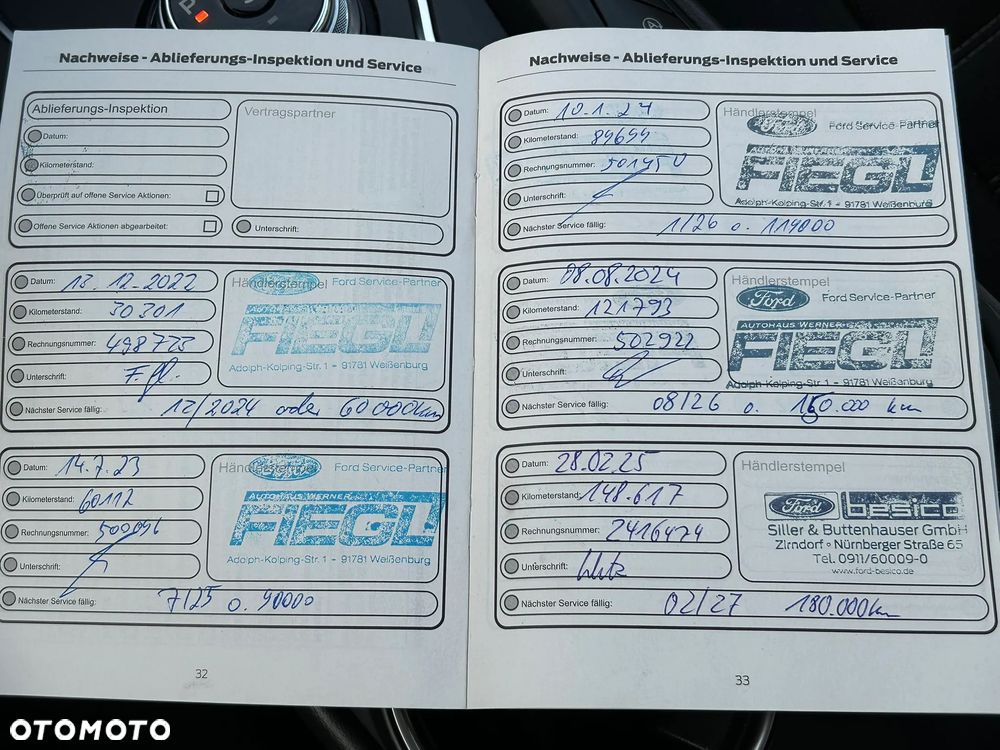 Nachweise - Ablieferungs-Inspektion und Service
Ablieferungs-Inspektion
Vertragspartner
Datum:
Kilometerstand:
Überprüft auf offene Service Aktionen:
Offene Service Aktionen abgearbeitet:
Unterschrift:
Datum: 13.12.2022
Kilometerstand: 30301
Rechnungsnummer: 498773
Unterschrift:
Händlerstempel
Ford Service-Partner
AUTOHAUS WERNER
FIEGL
Adolph-Kolping-Str. 1 - 91781 Weißenburg
Nächster Service fällig: 12/2024 oder 60000km
Datum: 14.7.23
Kilometerstand: 60112
Rechnungsnummer: 500096
Unterschrift:
Händlerstempel
Ford Service-Partner
AUTOHAUS WERNER
FIEGL
Adolph-Kolping-Str. 1 - 91781 Weißenburg
Nächster Service fällig: 7/25 o. 90000
32
Nachweise - Ablieferungs-Inspektion und Service
Datum: 10.1.24
Kilometerstand: 89699
Rechnungsnummer:
Unterschrift:
Händlerstempel
Ford Ford Service-Partner
FIEGL
Adolph-Kolping-Str. 1 - 91781 Weißenburg
Nächster Service fällig: 1/26 o. 119000
Datum: 08.08.2024
Kilometerstand: 121793
Rechnungsnummer: 502922
Unterschrift:
Händlerstempel
Ford Ford Service-Partner
AUTOHAUS WERNER
FIEGL
Adolph-Kolping-Str. 1 - 91781 Weißenburg
Nächster Service fällig: 08/26 o. 150.000 km
Datum: 28.02.25
Kilometerstand: 148.617
Rechnungsnummer: 2416474
Unterschrift:
Händlerstempel
Ford besico
Siller & Buttenhauser GmbH
Zirndorf • Nürnberger Straße 65
Tel. 0911/60009-0
www.ford-besico.de
Nächster Service fällig: 02/27 180.000km
33
OTOMOTO